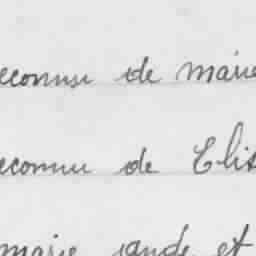 econnu de marie
econnu de Elis
marie aude et